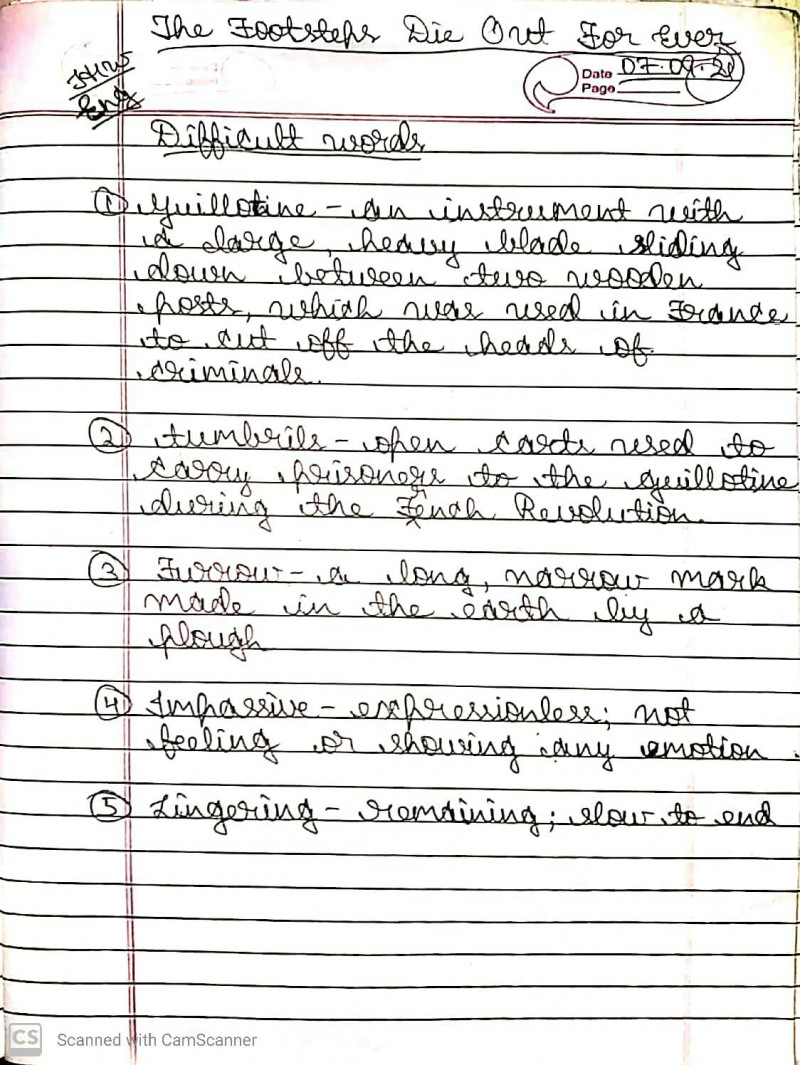 The Footsteps Die Out For Ever
H/W
Eng
Date 07.09.20
Page
Difficult words
① guillotine - an instrument with
a large, heavy blade sliding
down between two wooden
posts, which was used in France
to cut off the heads of
criminals.
② tumbrils - open carts used to
carry prisoners to the guillotine
during the Fench Revolution.
③ Furrow - a long, narrow mark
made in the earth by a
plough
④ Impassive - expressionless; not
feeling or showing any emotion.
⑤ Lingering - remaining; slow to end
CS Scanned with CamScanner